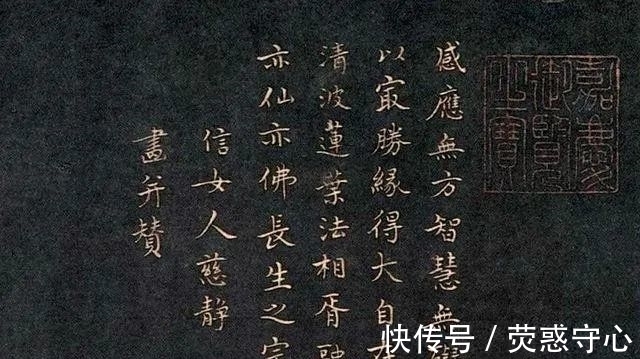 嘉慶御覽之寶
感應無方智慧無
以㝡勝緣得大自
清波蓮葉法相胥
亦仙亦佛長生之宗
信女人慈静
畫并贊
快传号 / 荧惑守心